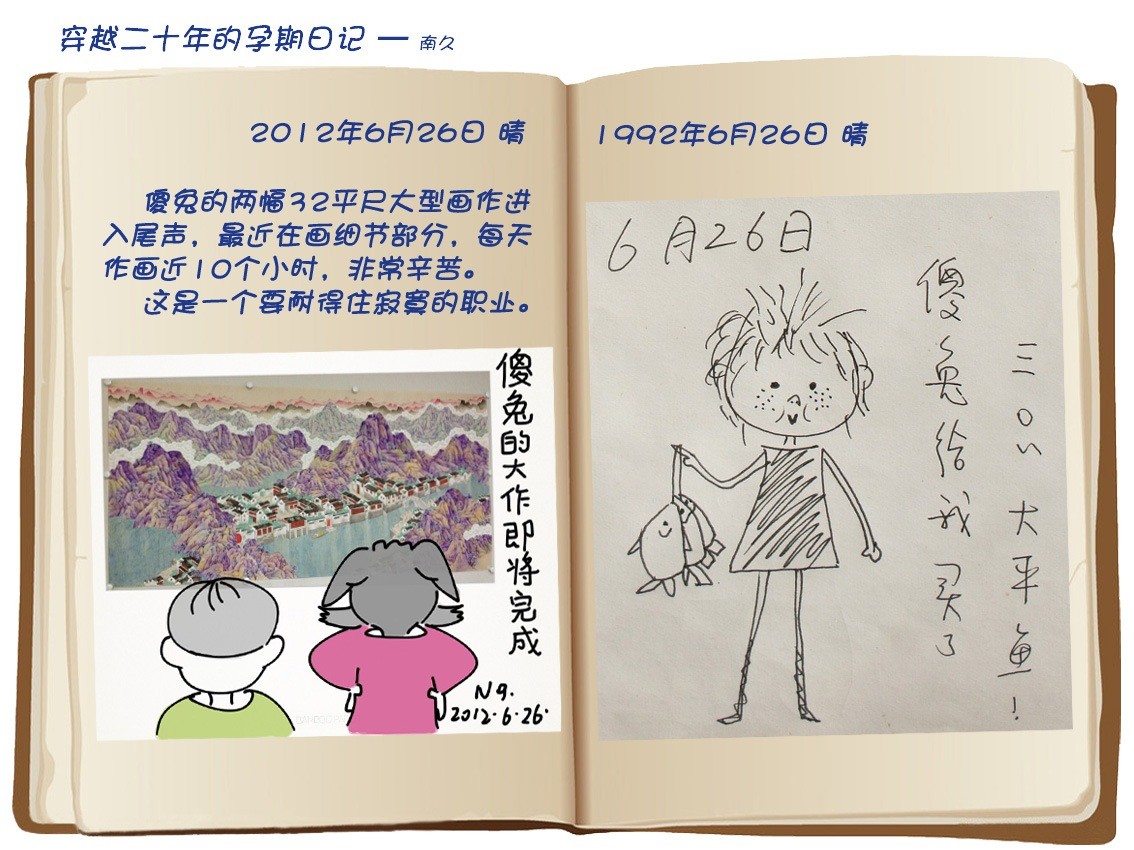 穿越二十年的孕期日记 — 南久
2012年6月26日 晴
傻兔的两幅32平尺大型画作进
入尾声，最近在画细节部分，每天
作画近10个小时，非常辛苦。
这是一个要耐得住寂寞的职业。
傻兔的大作即将完成
N9.
2012·6·26·
1992年6月26日 晴
6月26日
傻兔给我买了
三只大平鱼！